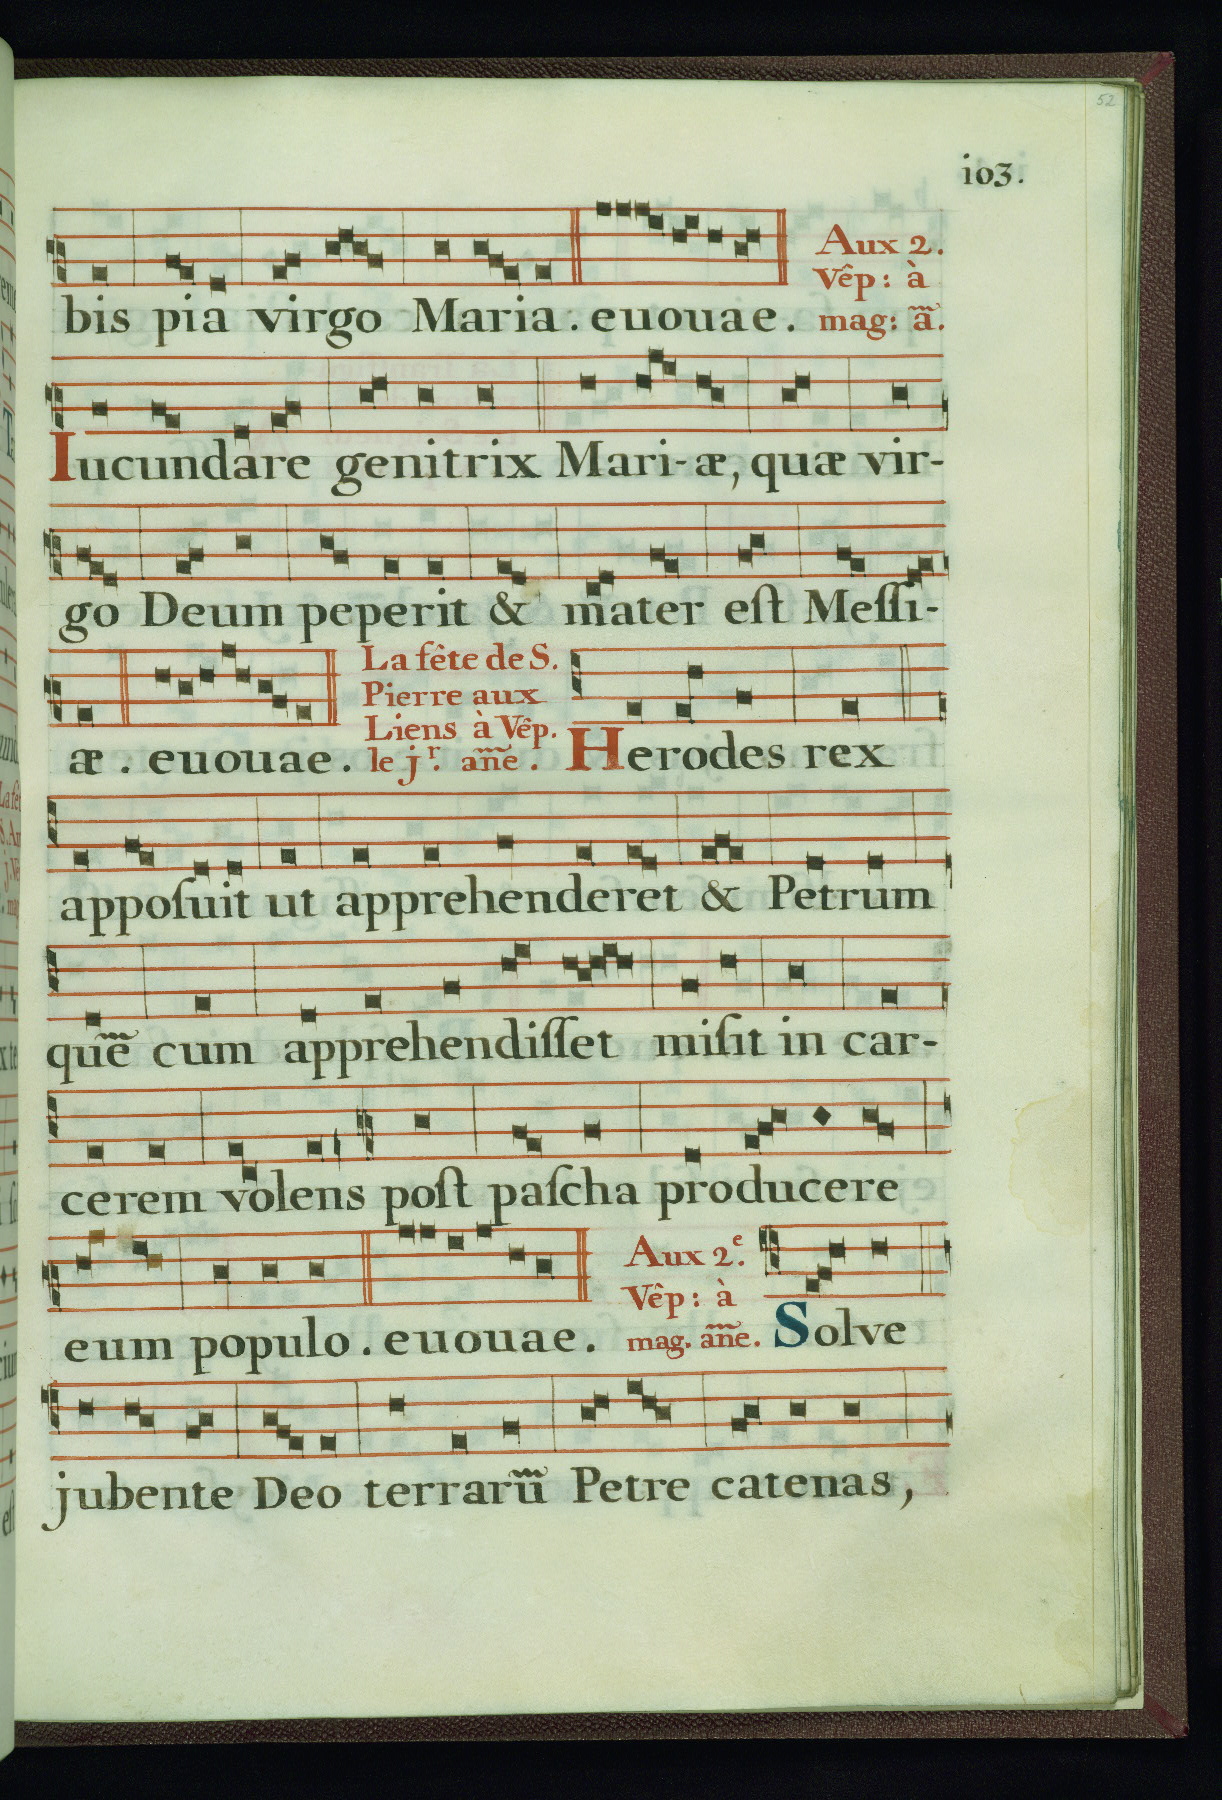 52
103.
bis pia virgo Maria. euouae. Aux 2.
Vêp: à
mag: ã.
Iucundare genitrix Mari-æ, quæ vir-
go Deum peperit & mater eſt Meſſi-
æ. euouae. La fête de S.
Pierre aux
Liens à Vêp.
le jʳ. añe. Herodes rex
appoſuit ut apprehenderet & Petrum
quẽ cum apprehendiſſet miſit in car-
cerem volens poſt paſcha producere
eum populo. euouae. Aux 2ᵉ.
Vêp: à
mag. añe. Solve
jubente Deo terrarũ Petre catenas,